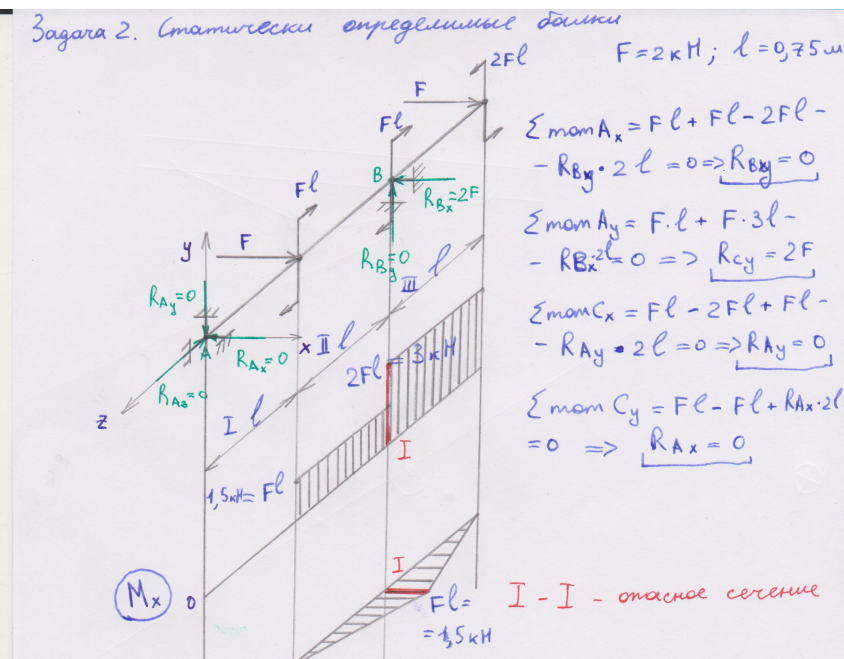 Задача 2. Статически определимые балки
F = 2кН; l = 0,75м
2Fl
F
Fl
B
R_Bx = 2F
Fl
F
y
R_By = 0
R_Ay = 0
III l
A
R_Ax = 0
x
II l
R_Az = 0
z
I l
2Fl = 3кН
I
1,5кН = Fl
Mx
0
I
Fl =
= 1,5кН
Σmom Ax = Fl + Fl - 2Fl -
- R_By · 2l = 0 => R_By = 0
Σmom Ay = F·l + F·3l -
- R_Bx·2l = 0 => R_Cy = 2F
Σmom Cx = Fl - 2Fl + Fl -
- R_Ay · 2l = 0 => R_Ay = 0
Σmom Cy = Fl - Fl + R_Ax·2l
= 0 => R_Ax = 0
I - I - опасное сечение